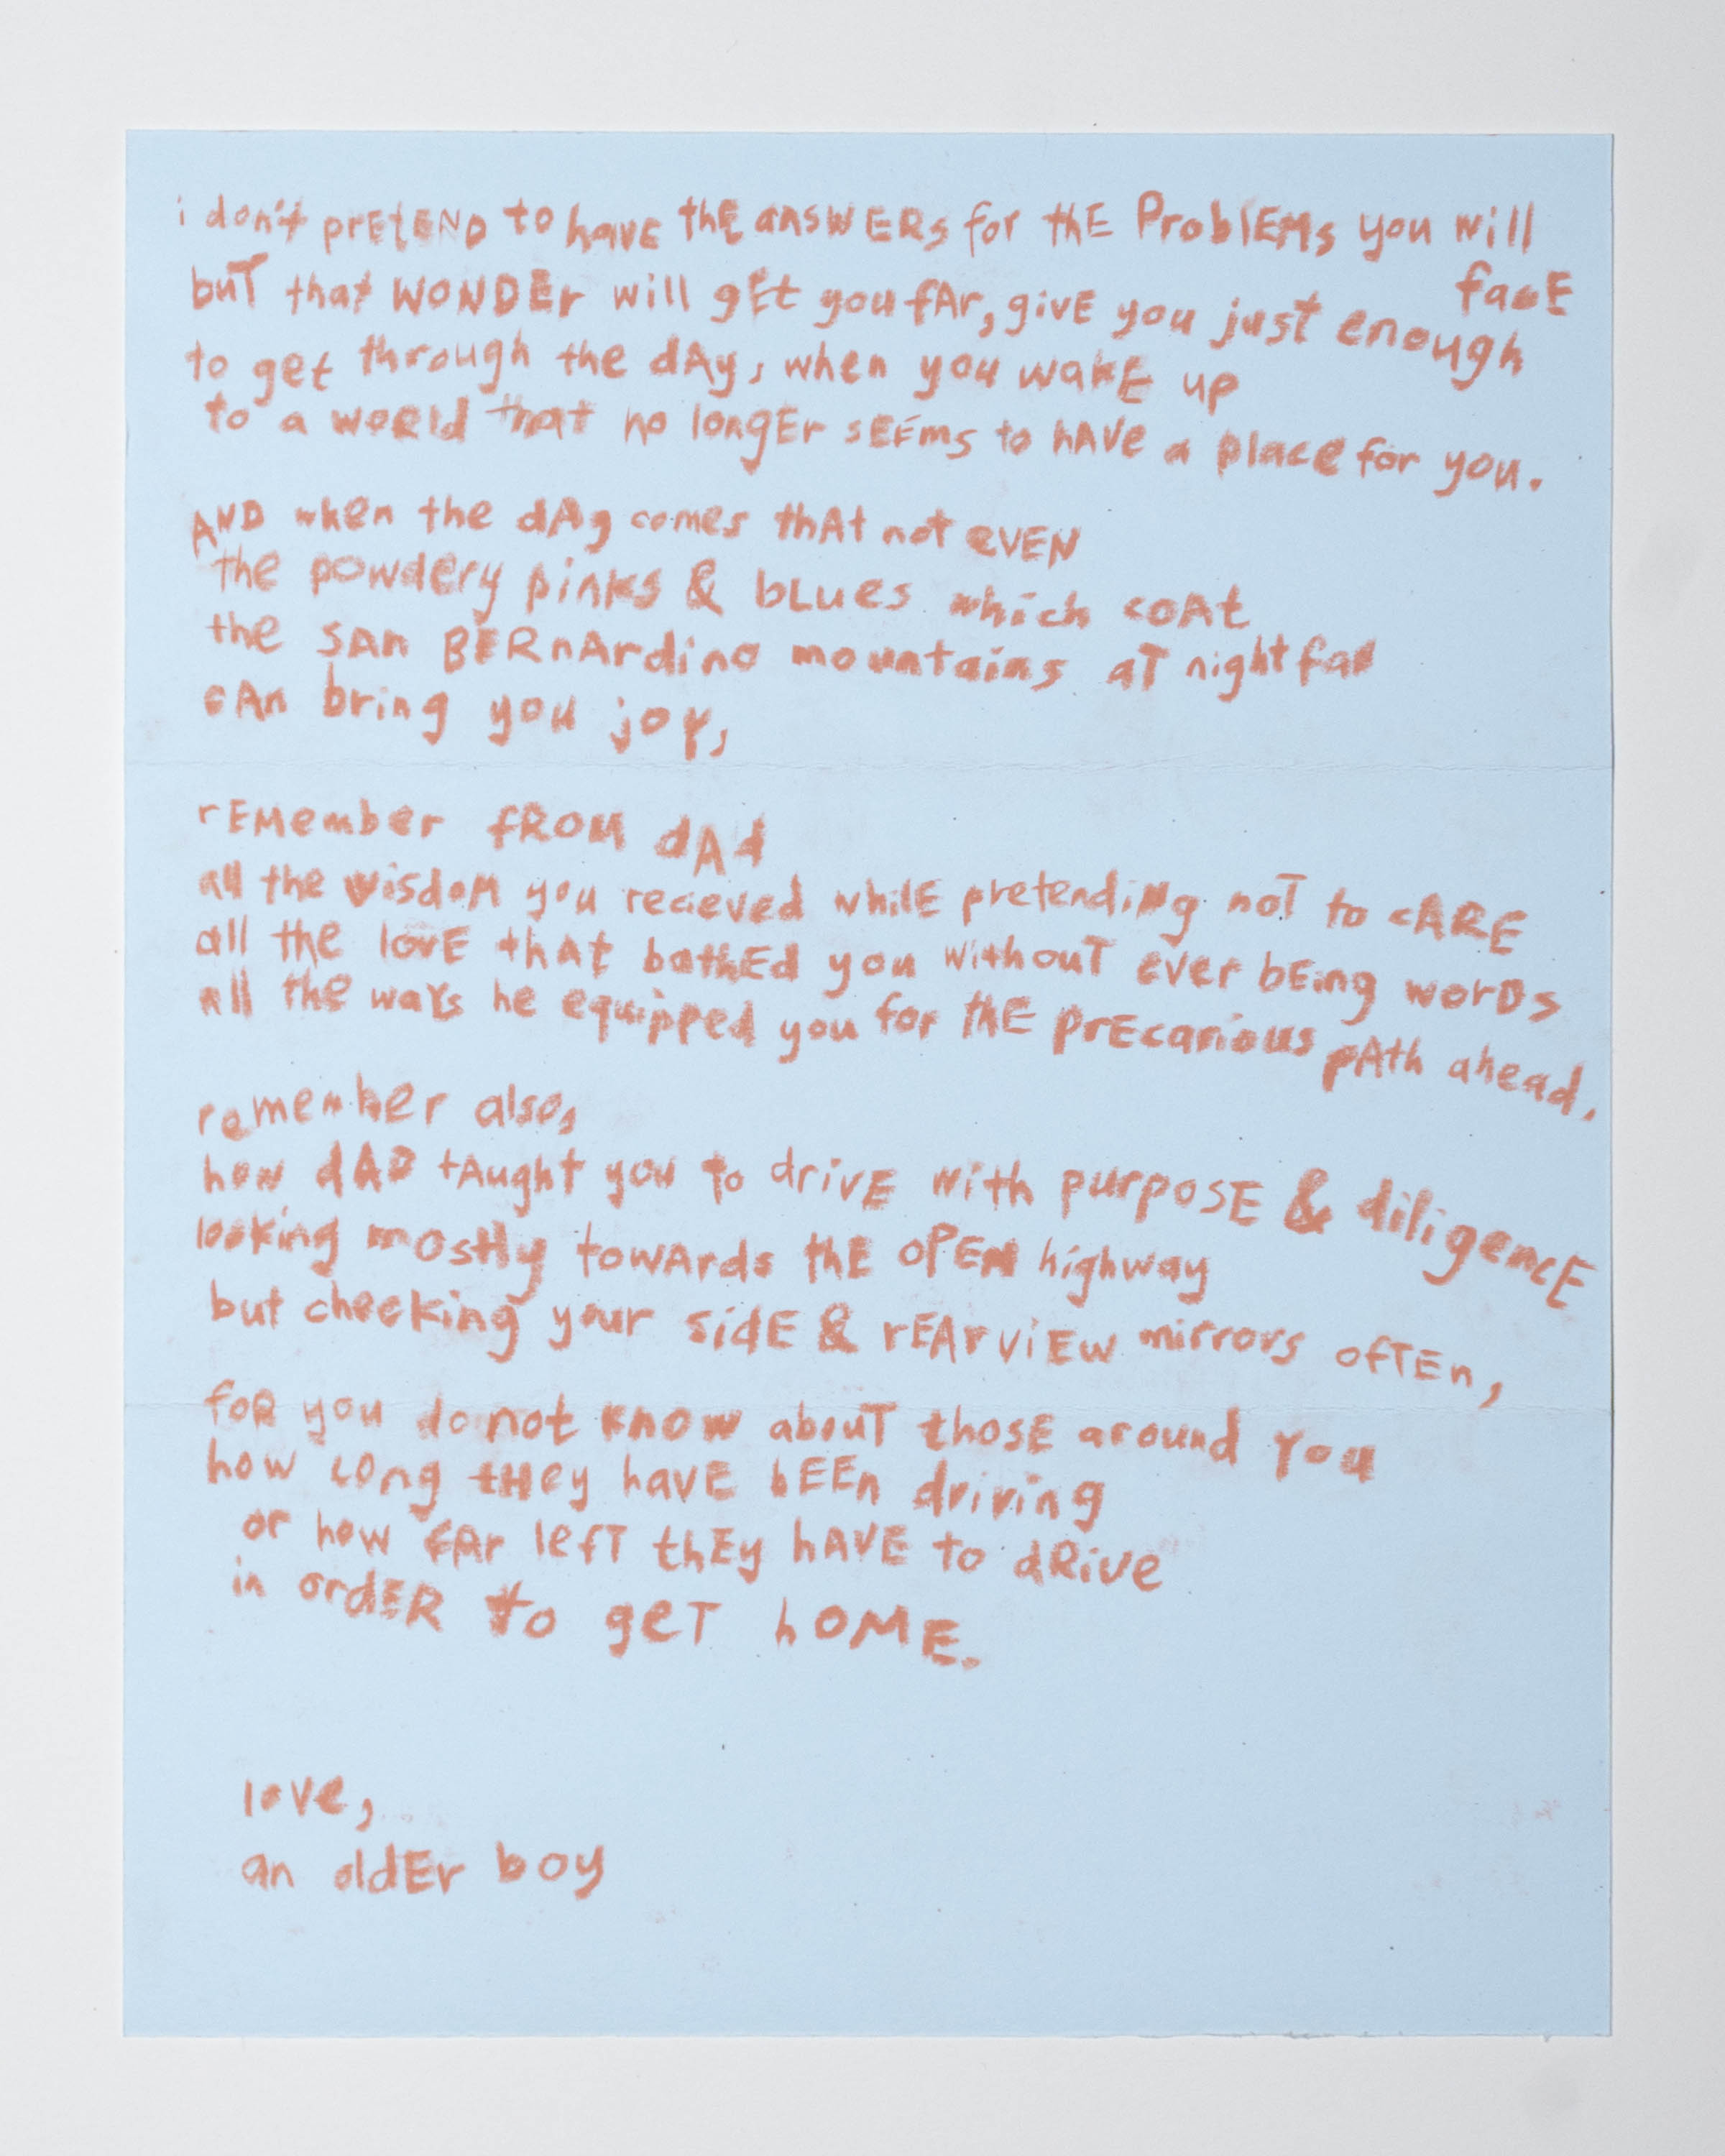 i don't prEtEND to havE thE answERs for thE ProblEMs you will facE
buT that WONDEr will gEt you fAr, givE you just enough
to get through the dAy, when you wakE up
to a world that no longEr sEEms to hAVe a place for you.
AND when the dAy comes thAt not eVEN
the powdery pinks & bLues which coAt
the sAn BERnArdino mountains aT nightfall
cAn bring you joy,
rEMember fROM dAd
all the wisdoM you recieved whilE pretending noT to cARE
all the lovE thAt bathEd you withouT ever bEing worDs
all the waYs he equipped you for thE prEcarious pAth ahead.
remember also,
how dAD tAught you to drivE with purposE & diligencE
looking mostly towArds thE oPEN highway
but checking your sidE & rEArviEw mirrors ofTEn,
foR you do not know abouT thosE around You
how Long tHey havE bEEn driving
or how fAr lefT thEy hAVE to dRive
in ordER to geT hOME.
love,
an oldEr boy